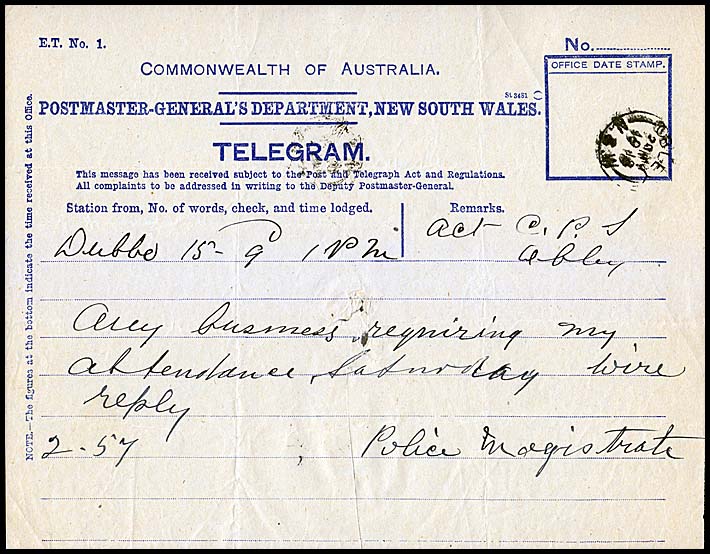 E.T. No. 1.
No.
COMMONWEALTH OF AUSTRALIA.
OFFICE DATE STAMP.
St 3481
POSTMASTER-GENERAL'S DEPARTMENT, NEW SOUTH WALES.
TELEGRAM.
This message has been received subject to the Post and Telegraph Act and Regulations.
All complaints to be addressed in writing to the Deputy Postmaster-General.
Station from, No. of words, check, and time lodged.
Remarks.
Act C. P. S
Dubbo 15-9 1 Pm
obley
Any business requiring my
attendance Saturday wire
reply
2-57 Police Magistrate
NOTE.—The figures at the bottom indicate the time received at this Office.
OBLEY
N.S.W